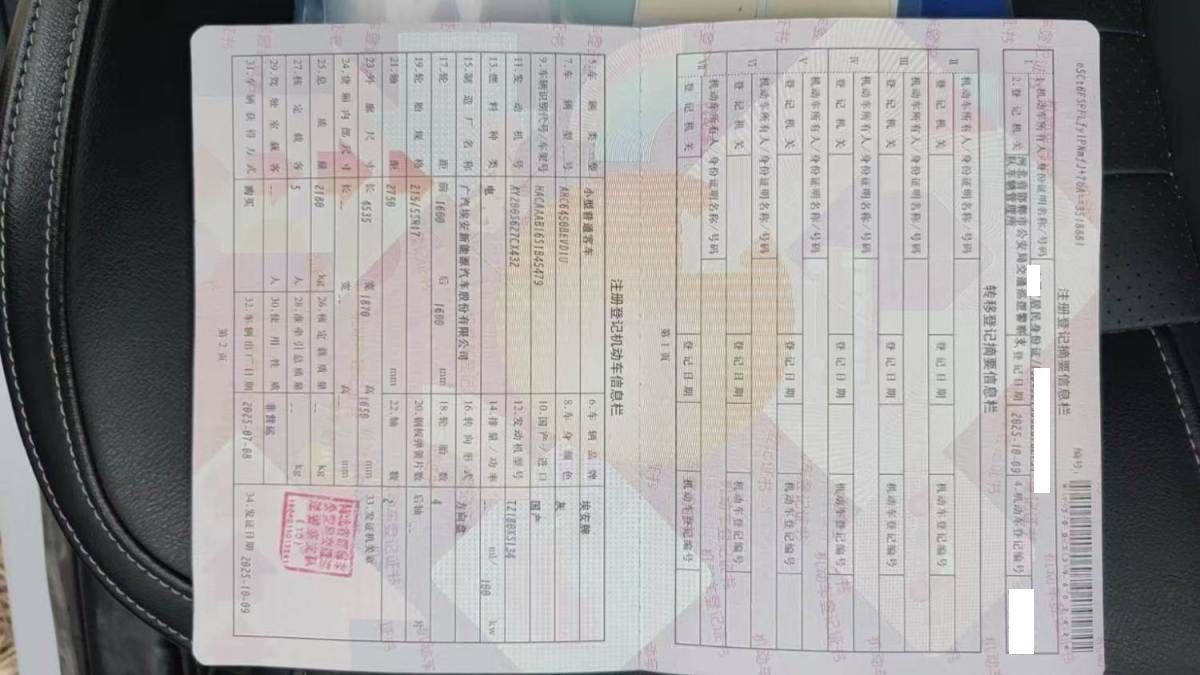 注册登记摘要信息栏
编号:
1.机动车所有人/身份证明名称/号码
居民身份证/
2.登记机关
河北省邯郸市公安局交通巡逻警察支队车辆管理所
3.登记日期
2025-10-09
4.机动车登记编号
转移登记摘要信息栏
II
机动车所有人/身份证明名称/号码
登记机关
登记日期
机动车登记编号
III
机动车所有人/身份证明名称/号码
登记机关
登记日期
机动车登记编号
IV
机动车所有人/身份证明名称/号码
登记机关
登记日期
机动车登记编号
V
机动车所有人/身份证明名称/号码
登记机关
登记日期
机动车登记编号
VI
机动车所有人/身份证明名称/号码
登记机关
登记日期
机动车登记编号
VII
机动车所有人/身份证明名称/号码
登记机关
登记日期
机动车登记编号
第1页
注册登记机动车信息栏
5.车辆类型 小型普通客车 6.车辆品牌 埃安牌
7.车辆型号 8.车身颜色 灰
9.车辆识别代号/车架号 10.国产/进口 国产
11.发动机号 12.发动机型号
13.燃料种类 电 14.排量/功率 ml/ 100 kw
15.制造厂名称 广汽埃安新能源汽车股份有限公司 16.转向形式 方向盘
17.轮距 前 1600 后 1600 mm 18.轮胎数 4
19.轮胎规格 215/55R17 20.钢板弹簧片数 后轴 -- 片
21.轴距 2750 mm 22.轴数 2
23.外廓尺寸 长 4535 宽 1870 高 1650 mm 33.发证机关章
24.货厢内部尺寸 长 -- 宽 -- 高 -- mm
25.总质量 2180 kg 26.核定载质量 -- kg
27.核定载客 5 人 28.准牵引总质量 -- kg
29.驾驶室载客 -- 人 30.使用性质 非营运
31.车辆获得方式 购买 32.车辆出厂日期 2025-07-08 34.发证日期 2025-10-09
第2页